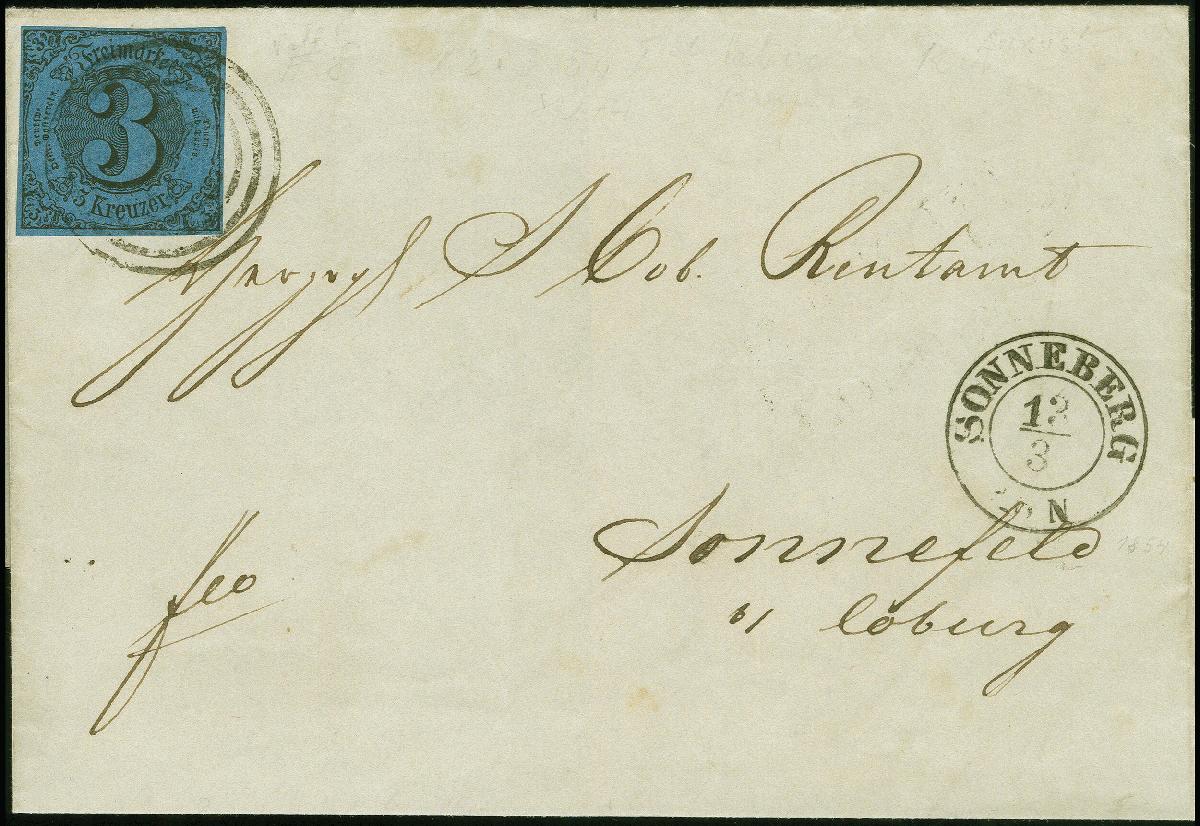 Freimarke
3
3 Kreuzer
Herzogl S Cob. Rentamt
SONNEBERG
12
3
N
Sonnefeld
b/ Coburg
fco
1854